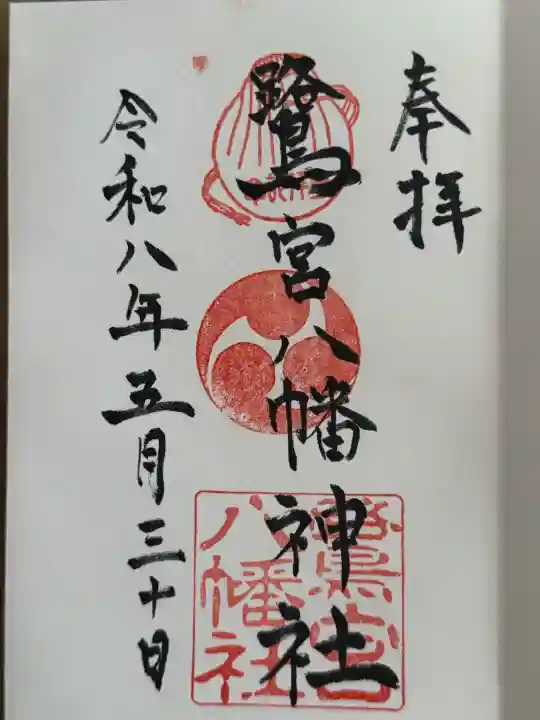 奉拝
鷺宮八幡神社
鷺宮
八幡社
令和八年五月三十日